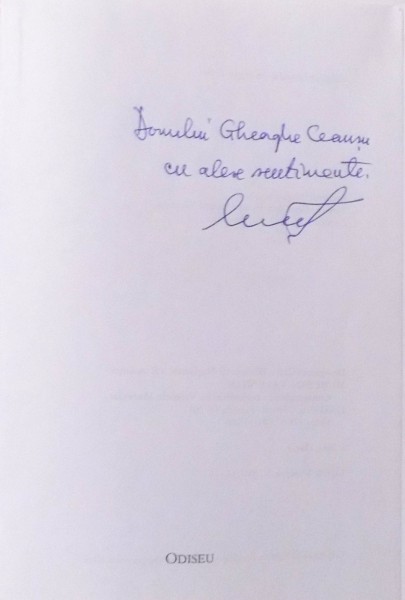 Domnului Gheorghe Ceaușu
cu alese sentimente.
ODISEU